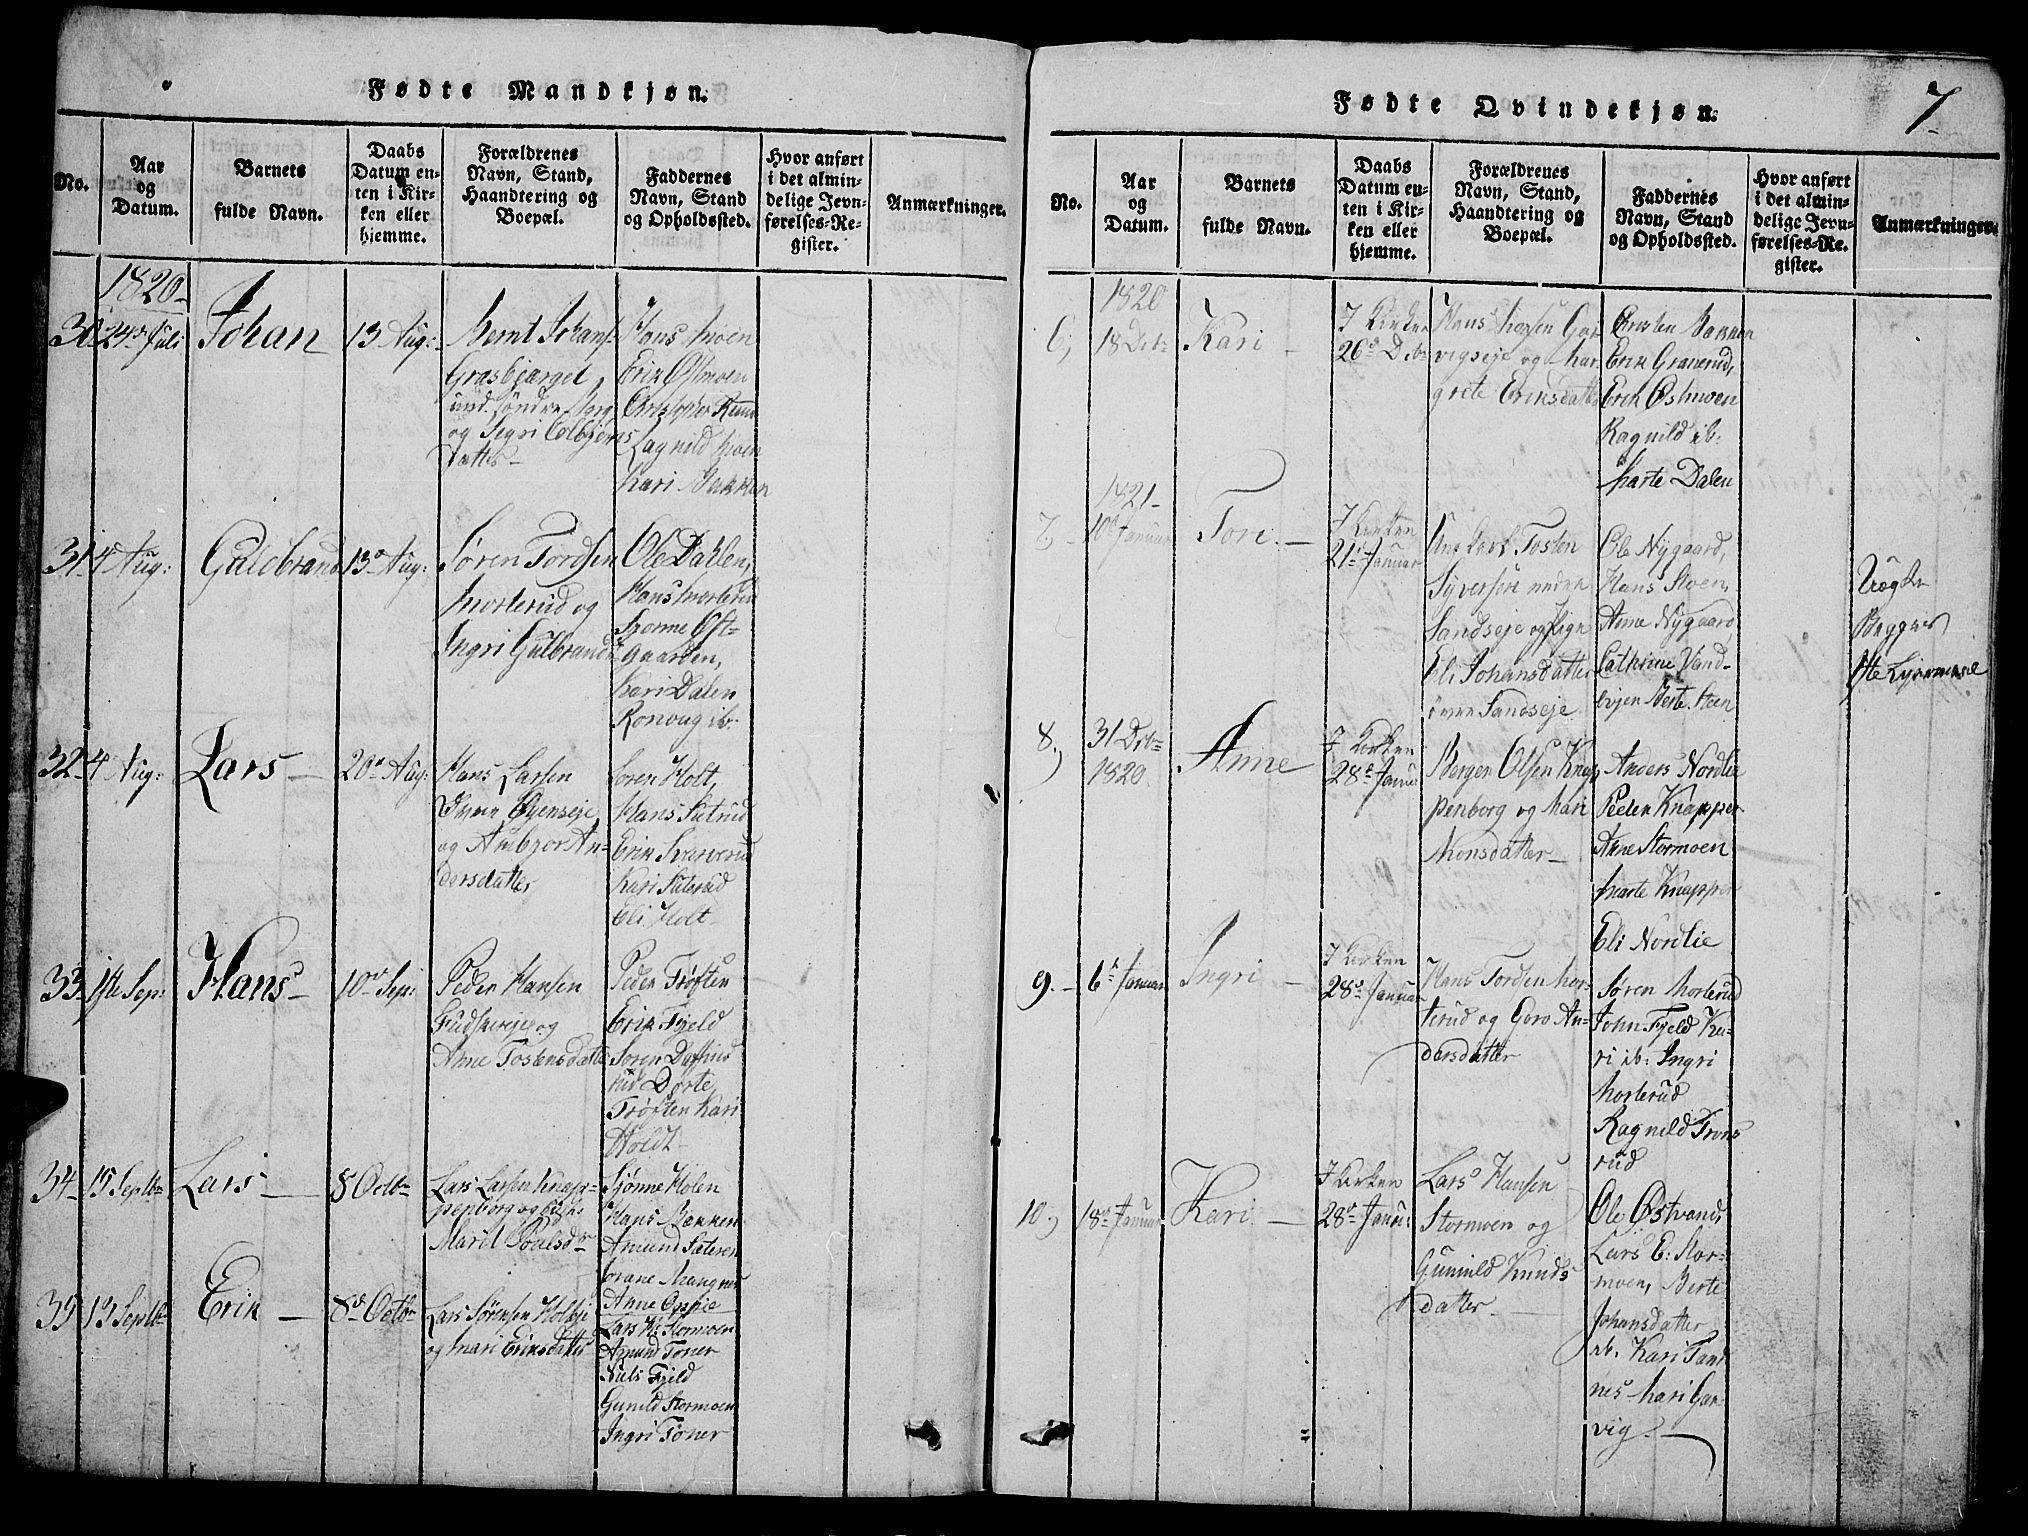 Fødte Mandkjøn.
No.
Aar
og
Datum.
Barnets
fulde Navn.
Daabs
Datum en-
ten i Kir-
ken eller
hjemme.
Forældrenes
Navn, Stand,
Haandtering og
Boepæl.
Faddernes
Navn, Stand
og Opholdssted.
Hvor anført
i det almin-
delige Jevn-
førelses-Re-
gister.
Anmærkninger.
1820
30 24de Juli
Johan
13 Aug:
Bernt Johans
Grasbjerget
und. søndre Berg
og Sigri Colbjørns
datter
Hans Moen
Erik Østmoen
Christopher
Ragnild Moen
Kari Bakken
31 4 Aug:
Guldbrand
13de Aug:
Søren Tordsen
Morterud og
Ingri Gulbrands
Ole Dahlen,
Hans Morterud
Sjonne Øst-
gaarden,
Kari Dalen
Ronnug ib.
32 4 Aug:
Lars
20de Aug:
Hans Larsen
Øyenseje
og Ambjor An-
dersdatter
Soren Holt,
Hans Sætrud
Erik
Kari Sæterud
Eli Holt
33 1ste Sep:
Hans
10de Sep:
Peder Hansen
og
Anne Tostensdatter
Peder Trøften
Erik Fjeld
Soren
rud Dorte
Trøften Kari
Holdt
34 15 Septbr
Lars
8 Octbr
Lars Larsen Knap-
penborg og
Marit Poulsdr
Sjønne Holen
Hans Bakken
Amund Sæteren
Jorane Mangnes
Anne Oppie
35 13 Septbr
Erik
8de Octbr
Lars Sørensen Holteje
og Mari Eriksdatter
Lars H: Stormoen
Amund Toner
Niels Fjeld
Gunild Stormoen
Ingri Toner
Fødte Qvindekjøn.
7
No.
Aar
og
Datum.
Barnets
fulde Navn.
Daabs
Datum en-
ten i Kir-
ken eller
hjemme.
Forældrenes
Navn, Stand,
Haandtering og
Boepæl.
Faddernes
Navn, Stand
og Opholdssted.
Hvor anført
i det almin-
delige Jevn-
førelses-Re-
gister.
Anmærkninger.
1820
6, 18 Dcbr
Kari
I Kirken
26de Dcbr
Hans Gar-
vigseje og Mar
grete Eriksdatter
Christen Bakken
Erik Granerud,
Erik Østmoen
Ragnild ib:
Marte Dalen
1821
7, 10de Januar
Tori
I Kirken
21de Januar
Ung Karl Tosten
Syversøn nedre
Sandseje og Pige
Eli Johansdatter
øvre Sandseje
Ole Nygaard,
Hans Stoen,
Anne Nygaard
Cathrine Sand-
Berte Steen
Begges
8.) 31 Dcbr
1820
Anne
I Kirken
28de Januar
Berger Olsen Knap
penborg og Mari
Monsdatter
Anders Nordlie
Peder Knapper
Anne Stormoen
Marte Knapper
Eli Nordlie
9. 6te Januar
Ingri
I Kirken
28de Januar
Hans Tordsen Mor-
terud og Goro An-
dersdatter
Søren Morterud
John Fjeld Ka-
ri ib: Ingri
Morterud
Ragnild Trons
rud
10.) 18de Januar
Kari
I Kirken
28de Janu:
Lars Hansen
Stormoen og
Gunnild Knuds
datter
Ole Østvand,
Lars E: Stor-
moen, Berte
Johansdatter
ib. Kari Sand
nes Mari Gar
vig.